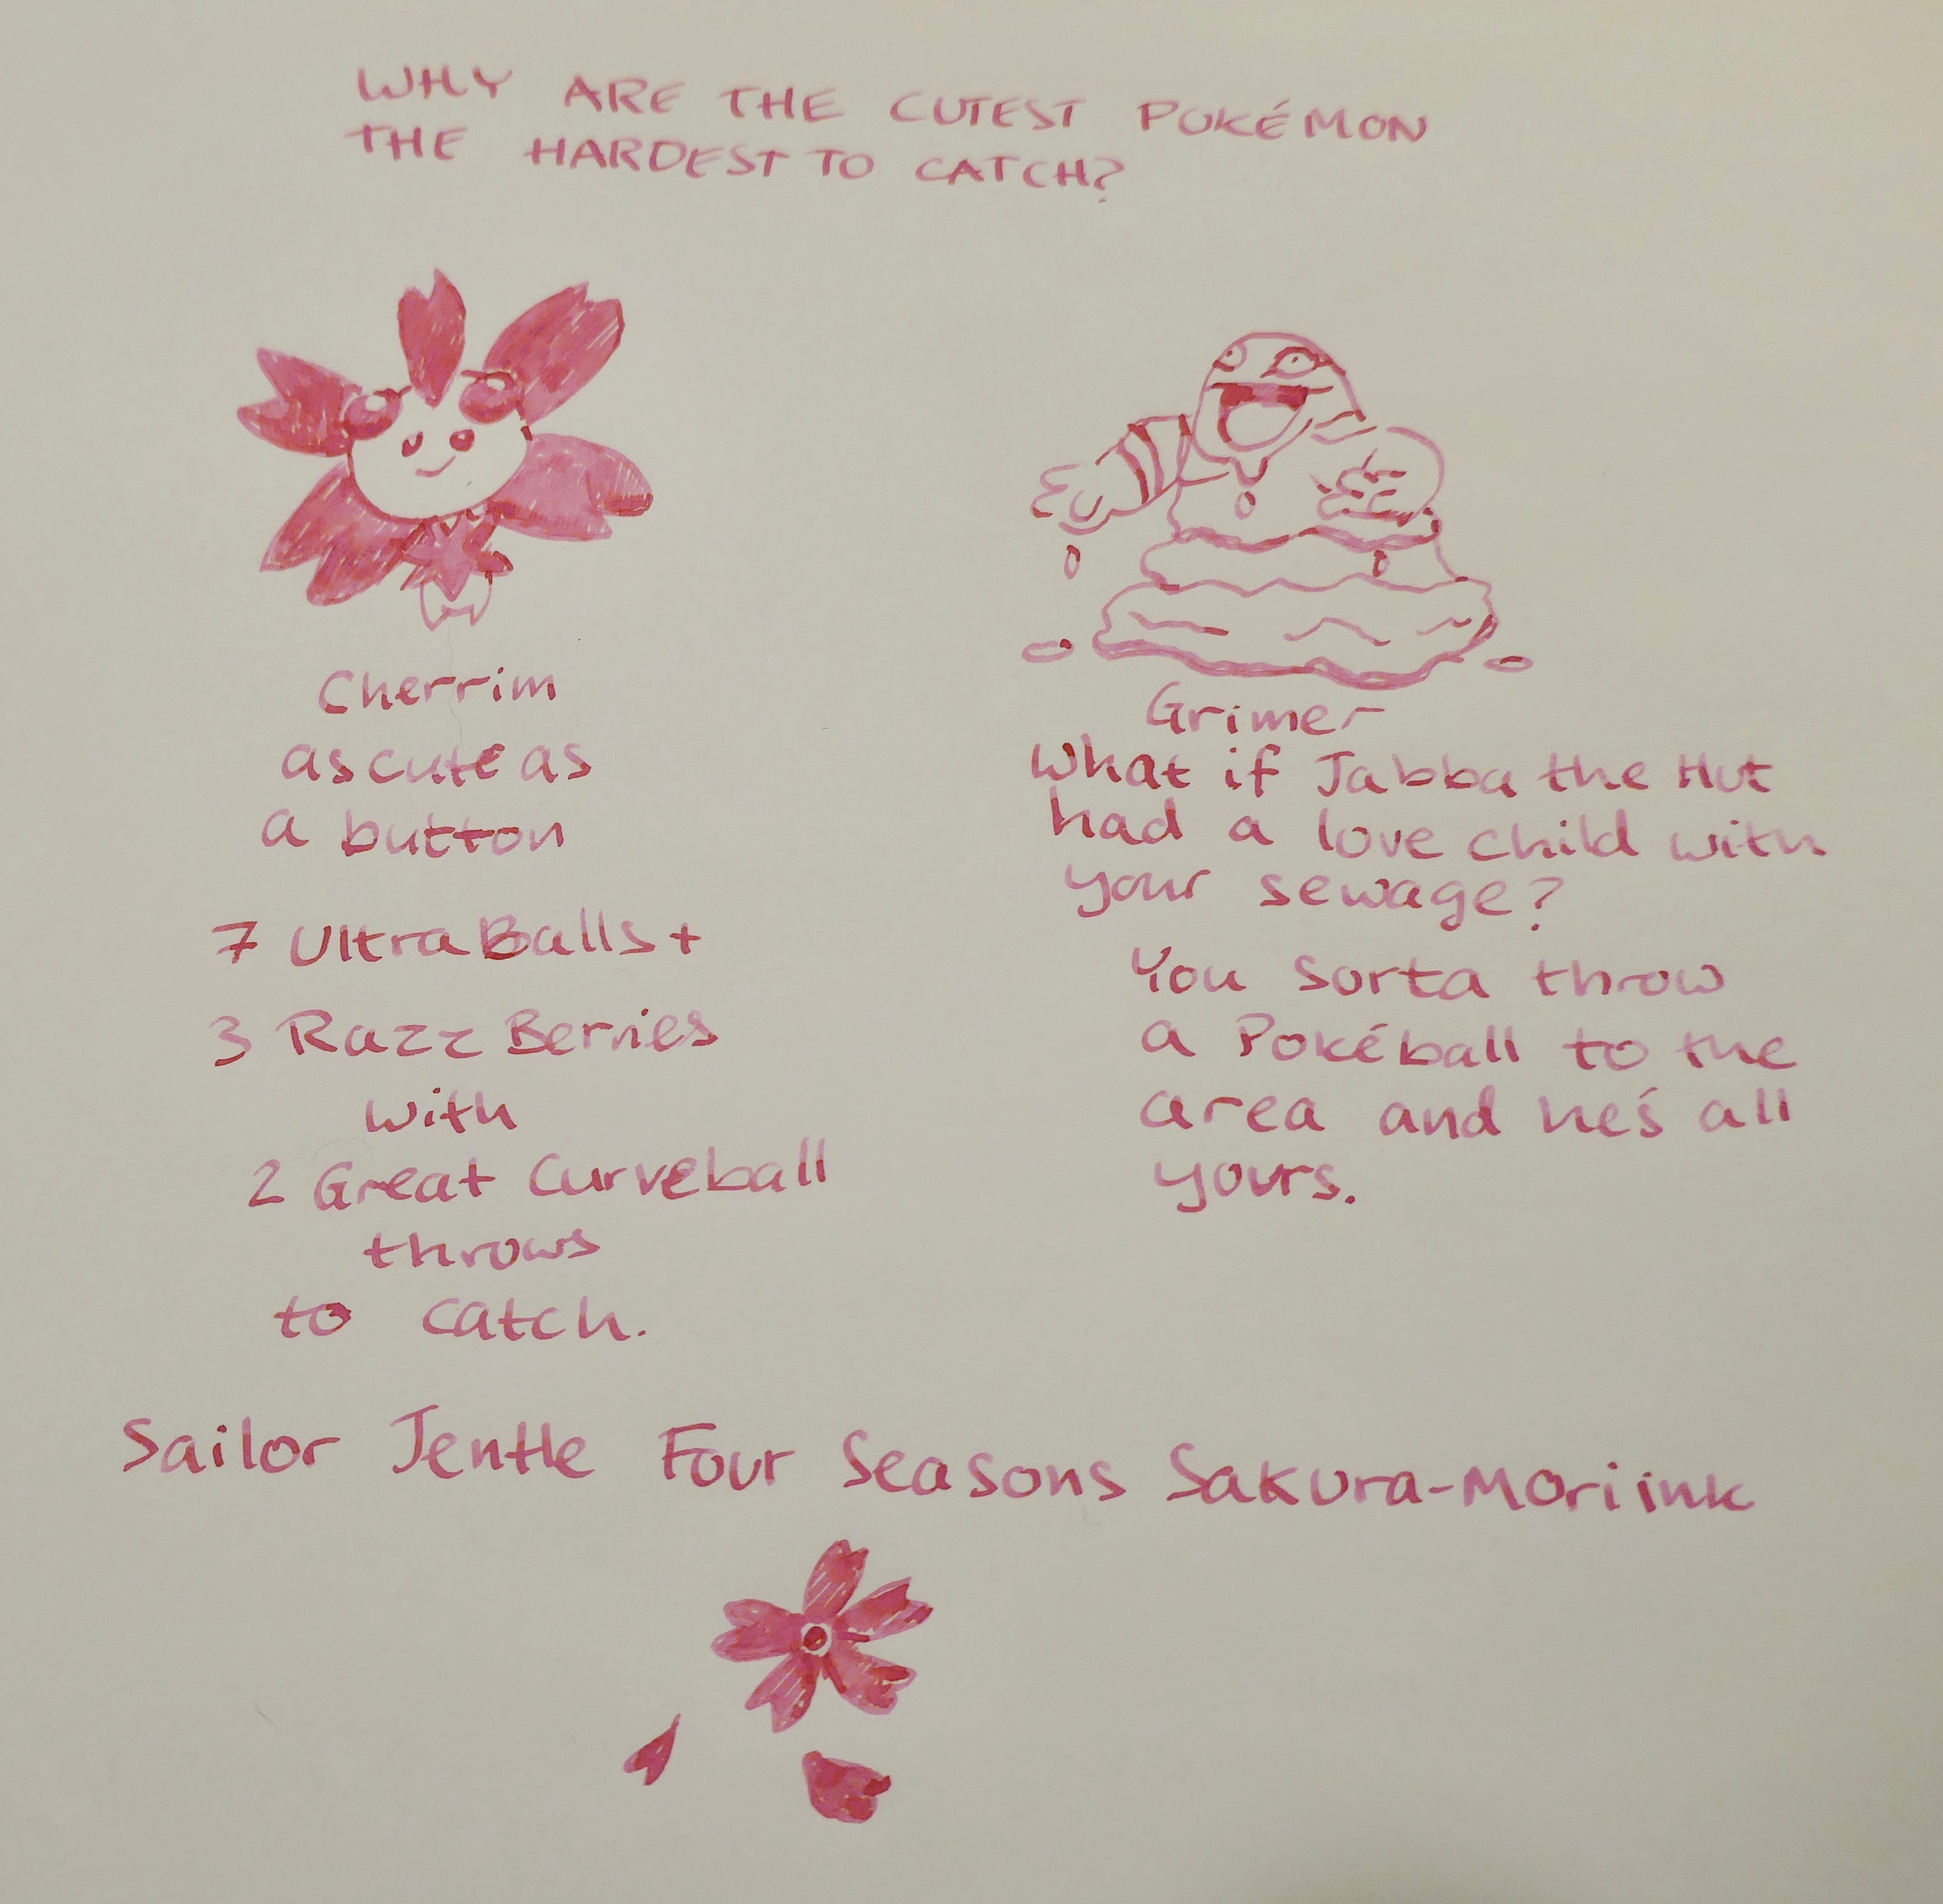 WHY ARE THE CUTEST POKÉMON
THE HARDEST TO CATCH?
Cherrim
as cute as
a button
7 Ultra Balls +
3 Razz Berries
with
2 Great Curveball
throws
to catch.
Grimer
What if Jabba the Hut
had a love child with
your sewage?
You sorta throw
a Pokéball to the
area and he's all
yours.
Sailor Jentle Four Seasons Sakura-Mori ink